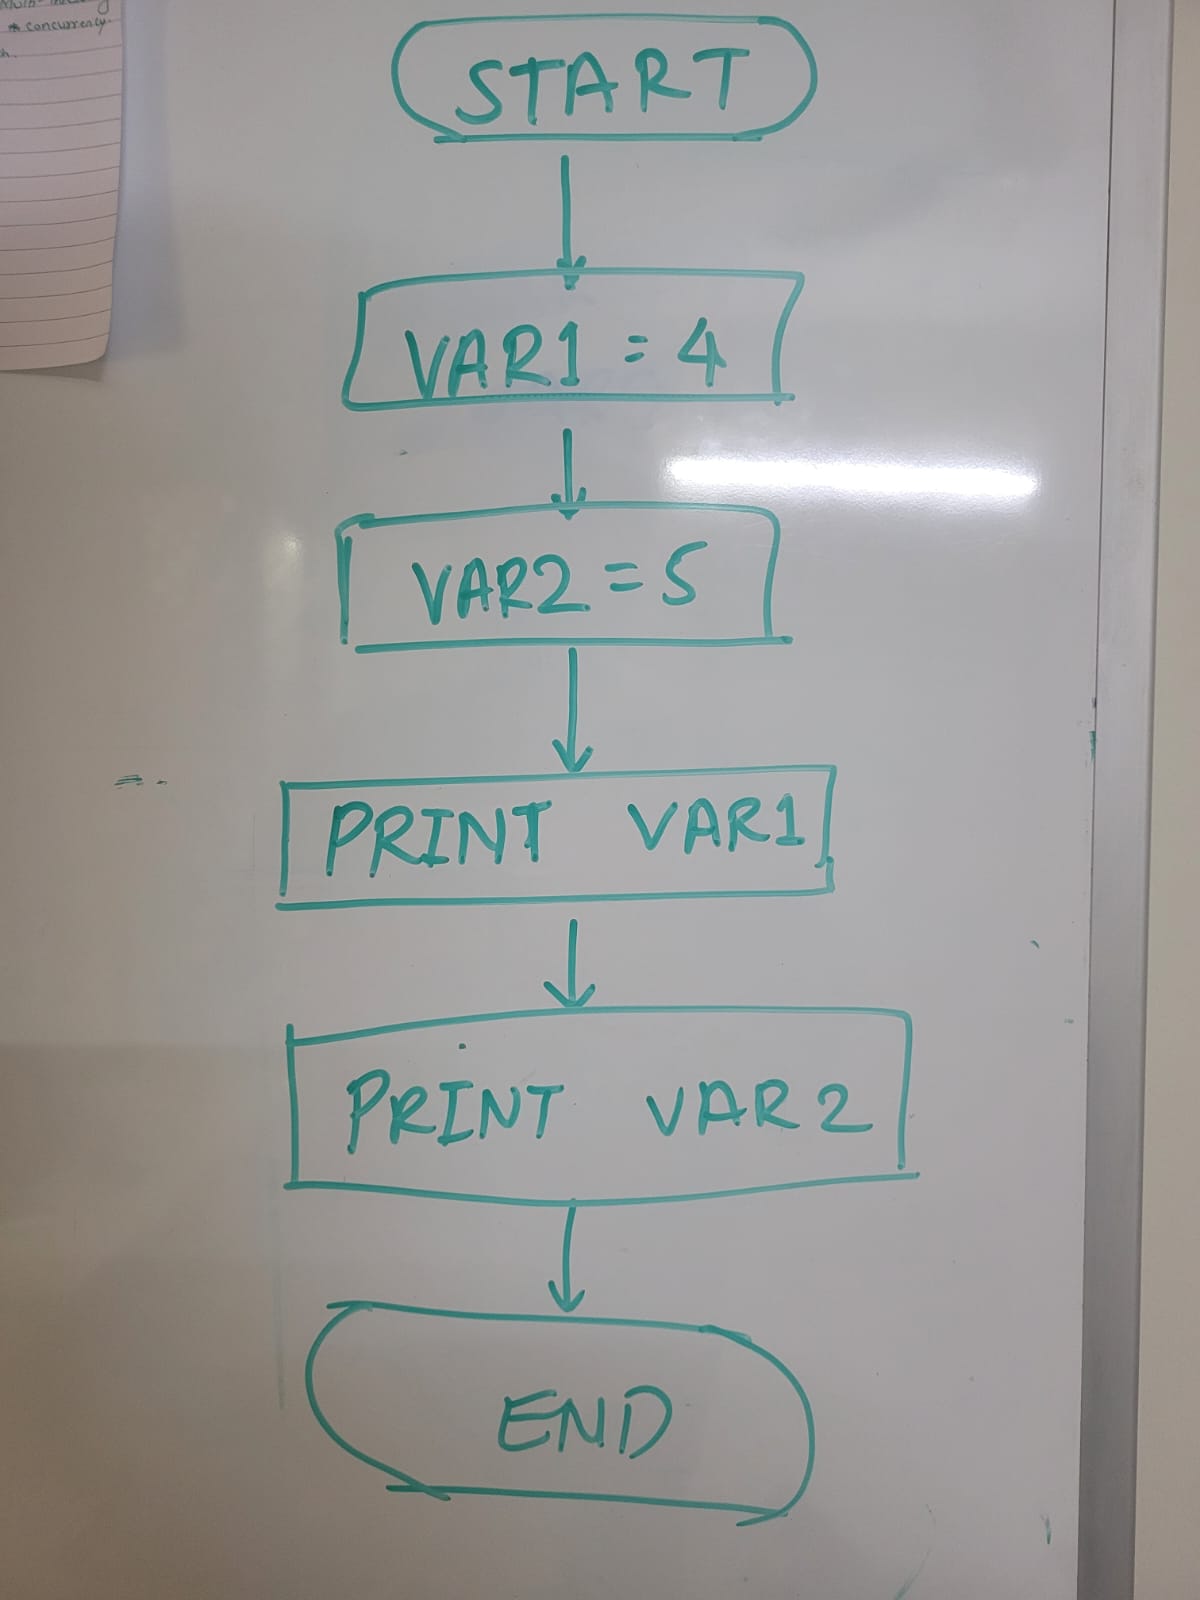 * Concurrency
START
VAR1 = 4
VAR2 = 5
PRINT VAR1
PRINT VAR2
END